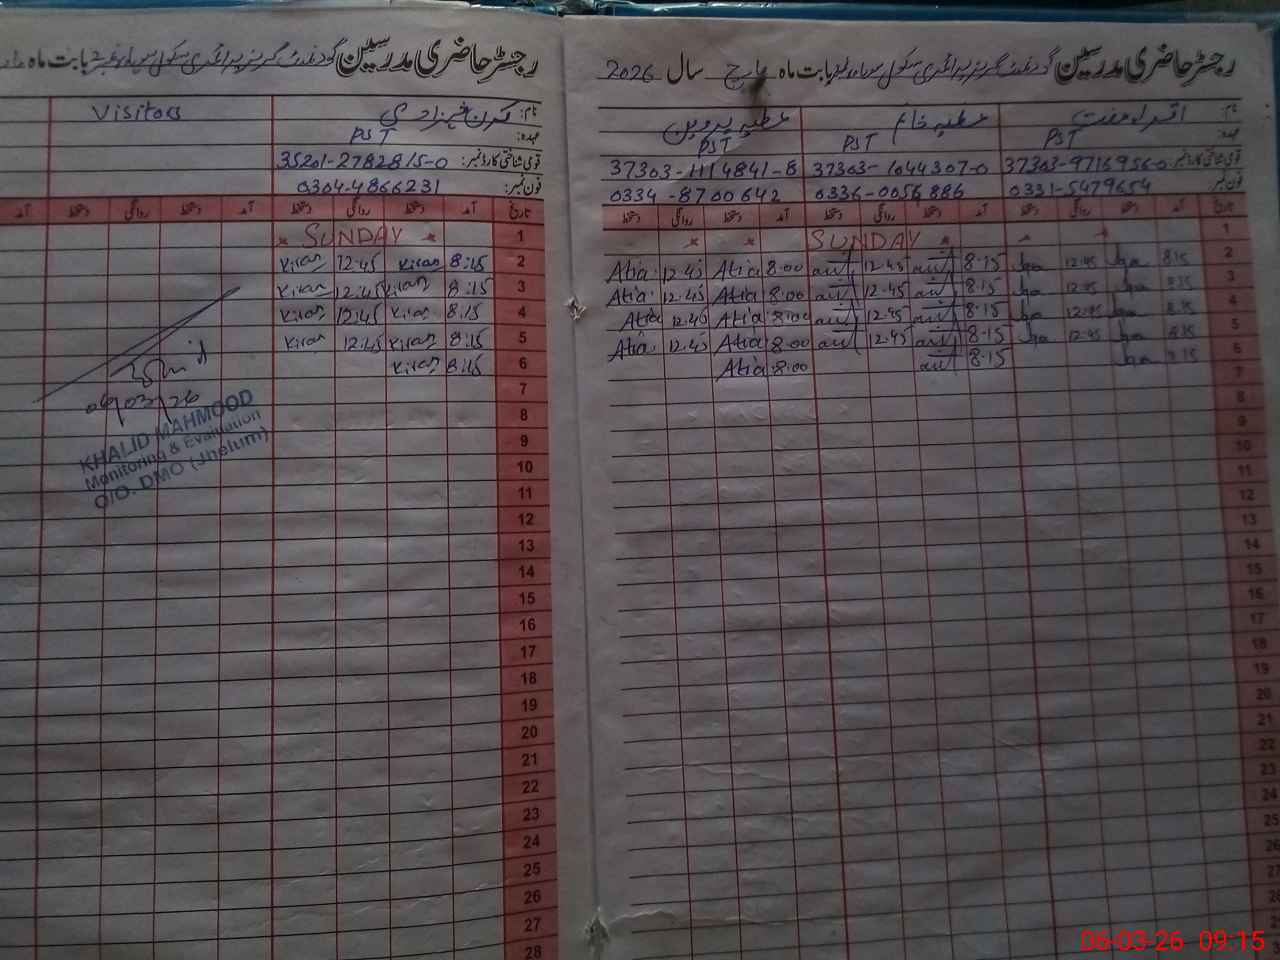 رجسٹر حاضری مدرسین گورنمنٹ گرلز پرائمری سکول بابت ماہ مارچ سال 2026
نام: اقراء عطیہ خانم عطیہ پروین
عہدہ: PST PST PST
قومی شناختی کارڈ نمبر: 37303-9716956-0 37303-1044307-0 37303-1114841-8
فون نمبر: 0331-5479654 0336-0056886 0334-8700642
تاریخ آمد دستخط روانگی دستخط آمد دستخط روانگی دستخط آمد دستخط روانگی دستخط
1 SUNDAY
2 8:15 Iqra 12:45 Iqra 8:15 12:45 8:00 Atia 12:45 Atia
3 8:15 Iqra 12:45 Iqra 8:15 12:45 8:00 Atia 12:45 Atia
4 8:15 Iqra 12:45 Iqra 8:15 12:45 8:00 Atia 12:45 Atia
5 8:15 Iqra 12:45 Iqra 8:15 12:45 8:00 Atia 12:45 Atia
6 8:15 Iqra 8:15 8:00 Atia
7
8
9
10
11
12
13
14
15
16
17
18
19
20
21
22
23
24
25
26
27
رجسٹر حاضری مدرسین گورنمنٹ گرلز پرائمری سکول بابت ماہ
نام: کرن شہزادی Visitors
عہدہ: PST
قومی شناختی کارڈ نمبر: 35201-2782815-0
فون نمبر: 0304-4866231
تاریخ آمد دستخط روانگی دستخط آمد دستخط روانگی دستخط آمد
1 SUNDAY
2 8:15 Kiran 12:45 Kiran
3 8:15 Kiran 12:45 Kiran
4 8:15 Kiran 12:45 Kiran
5 8:15 Kiran 12:45 Kiran
6 8:15 Kiran
7
8
9
10
11
12
13
14
15
16
17
18
19
20
21
22
23
24
25
26
27
28
06/03/26
KHALID MAHMOOD
Monitoring & Evaluation
O/O. DMO (Jhelum)
06-03-26 09:15